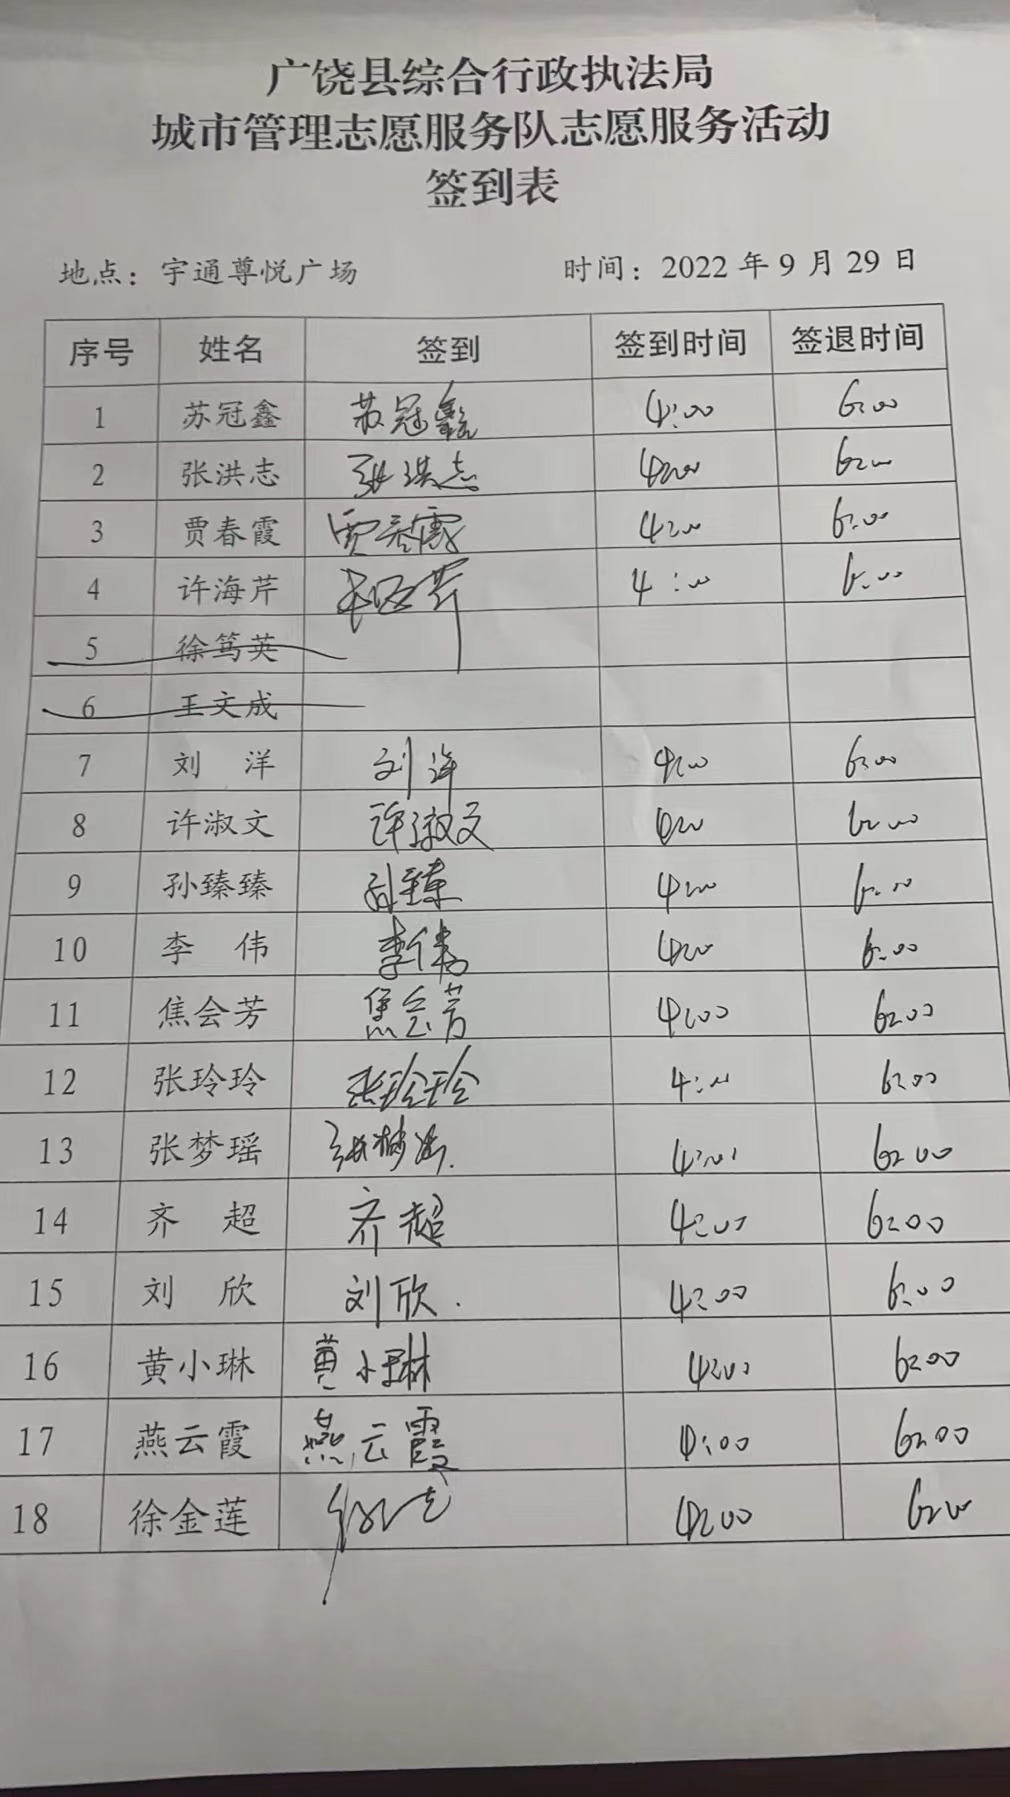 广饶县综合行政执法局
城市管理志愿服务队志愿服务活动
签到表
地点：宇通尊悦广场 时间：2022年9月29日
序号 姓名 签到 签到时间 签退时间
1 苏冠鑫 苏冠鑫 4:00 6:00
2 张洪志 张洪志 4:00 6:00
3 贾春霞 贾春霞 4:00 6:00
4 许海芹 许海芹 4:00 6:00
5 徐笃英
6 王文成
7 刘 洋 刘洋 4:00 6:00
8 许淑文 许淑文 4:00 6:00
9 孙臻臻 孙臻臻 4:00 6:00
10 李 伟 李伟 4:00 6:00
11 焦会芳 焦会芳 4:00 6:00
12 张玲玲 张玲玲 4:00 6:00
13 张梦瑶 张梦瑶 4:00 6:00
14 齐 超 齐超 4:00 6:00
15 刘 欣 刘欣. 4:00 6:00
16 黄小琳 黄小琳 4:00 6:00
17 燕云霞 燕云霞 4:00 6:00
18 徐金莲 4:00 6:00